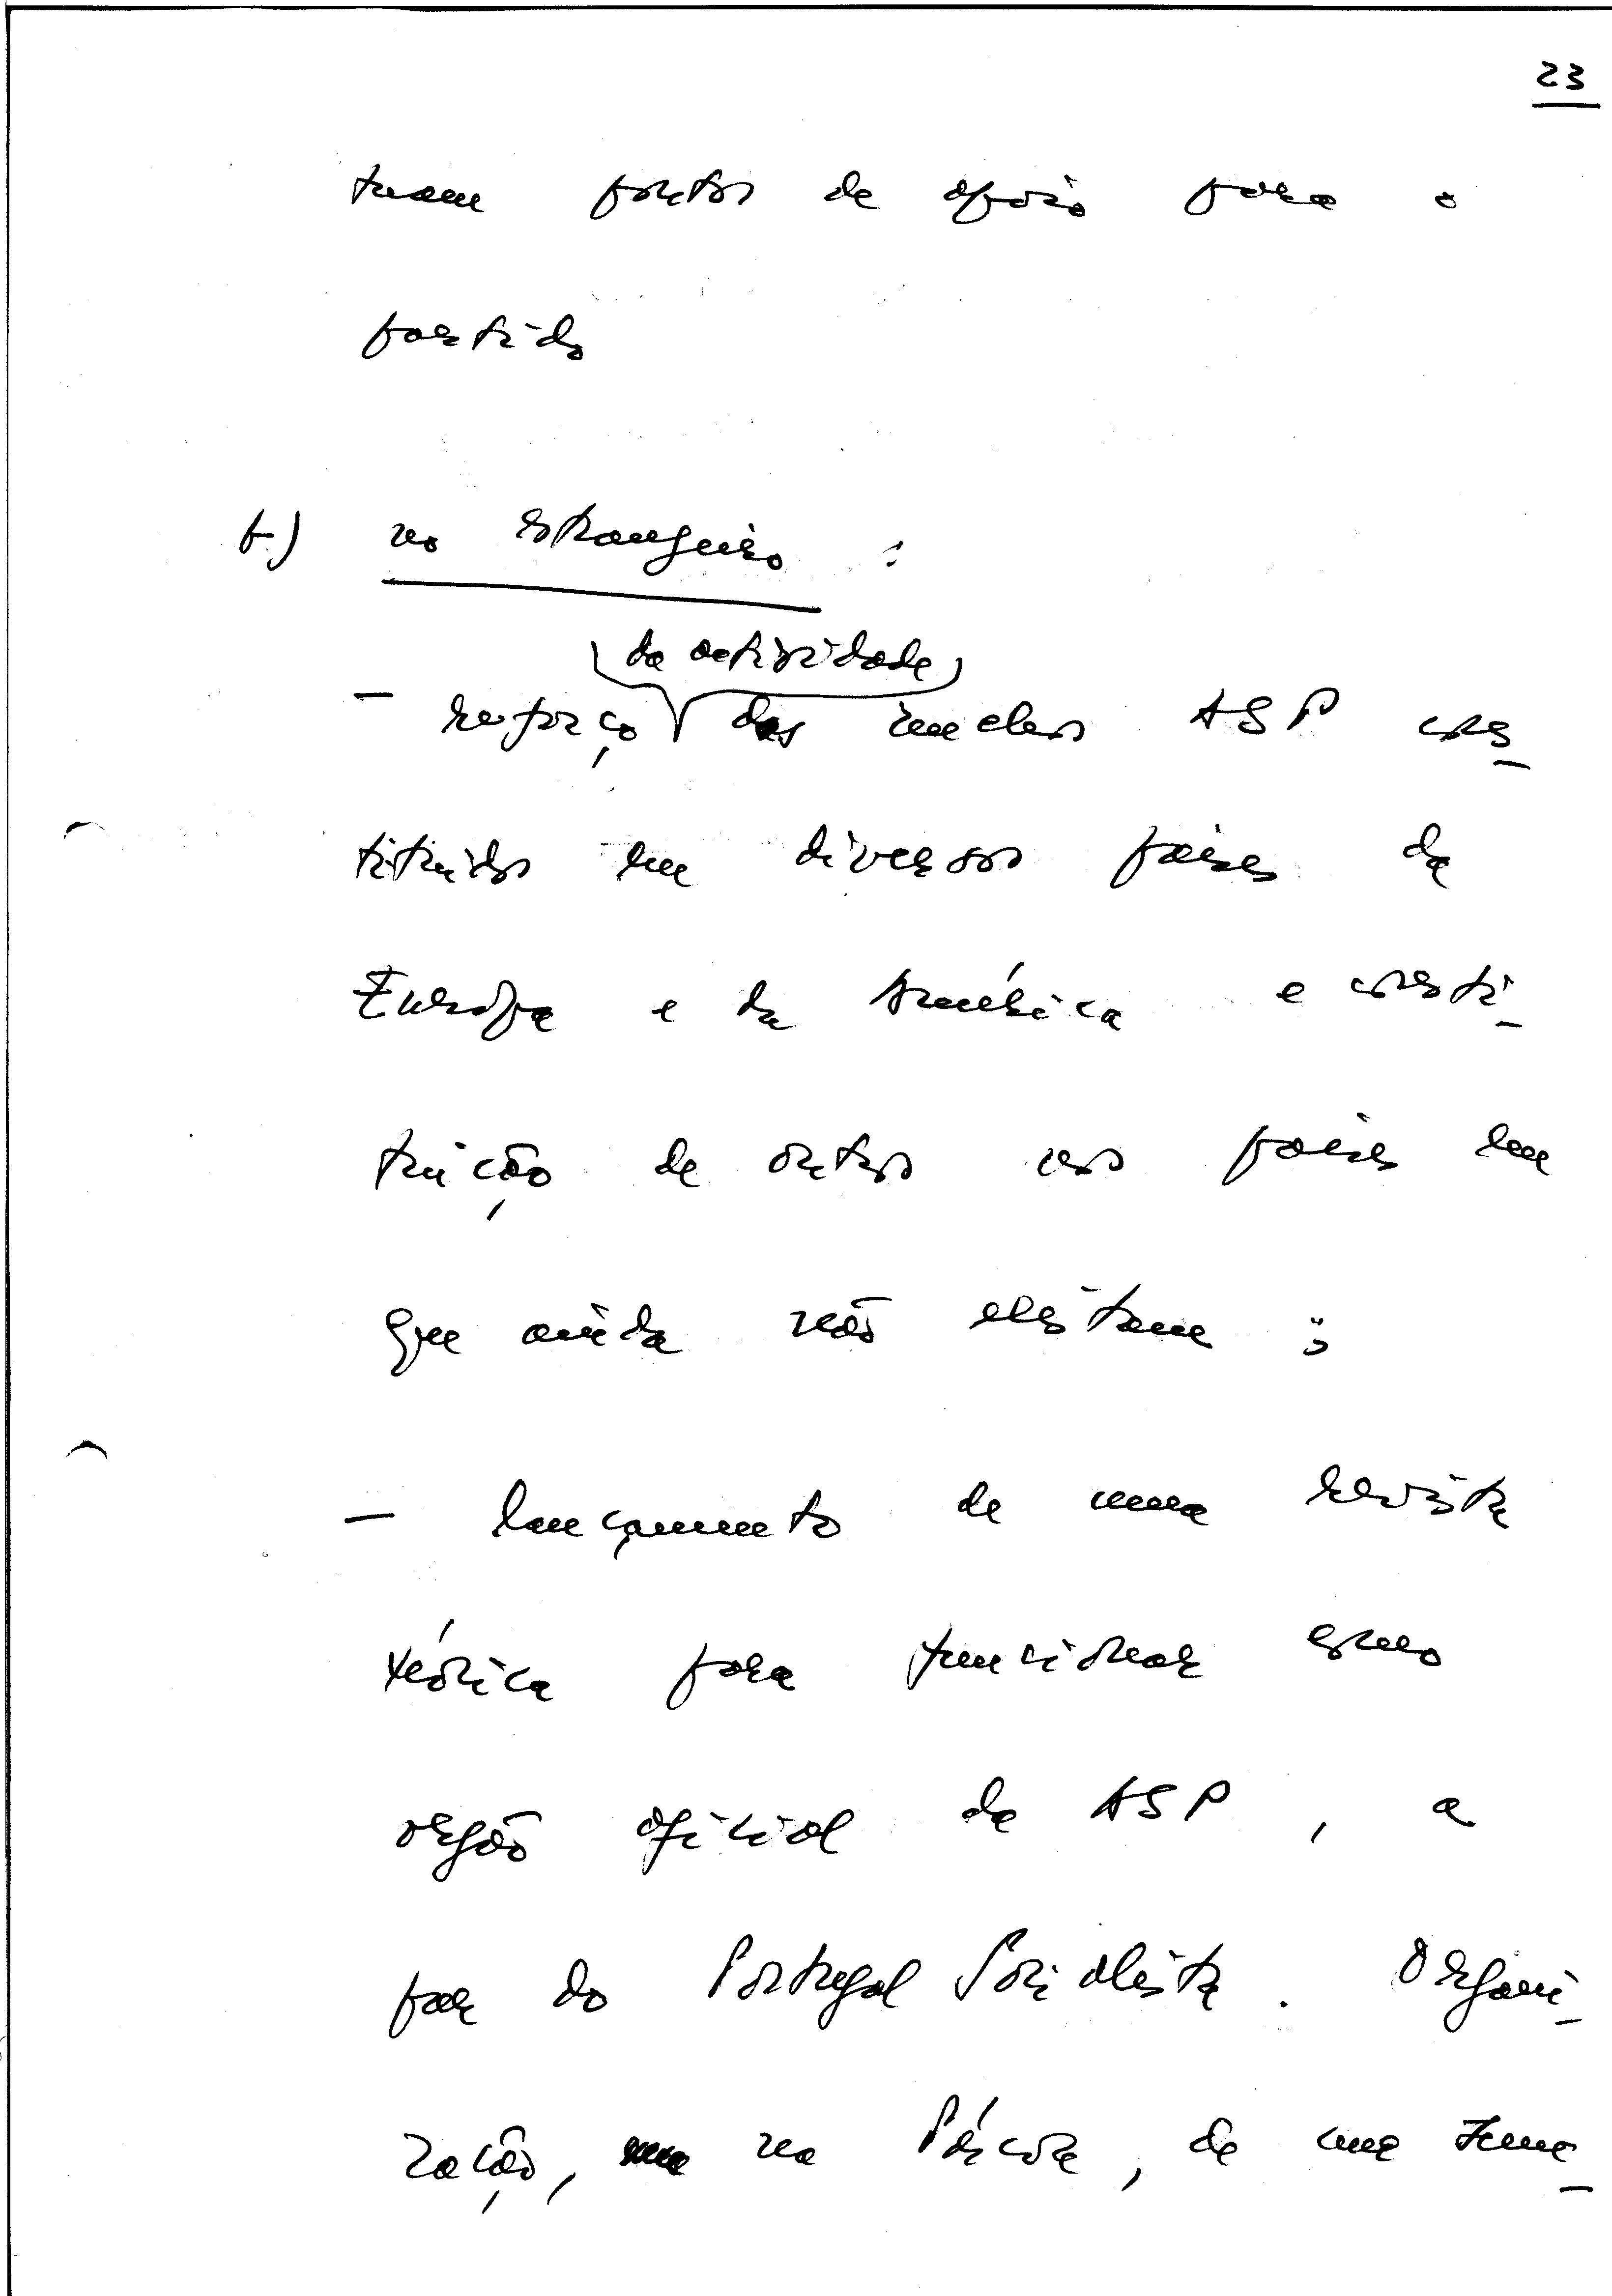 23
tuam pontos de apoio para o
partido
b) no estrangeiro :
da actividade
- reforço dos nucleos ASP cons-
tituidos em diversos paises da
Europa e da América e consti-
tuição de outros nos paises em
que ainda não existam ;
- lançamento de uma revista
teórica para funcionar como
orgão oficial da ASP , a
par do Portugal Socialista . Organi-
zação, na Páscoa , de uma